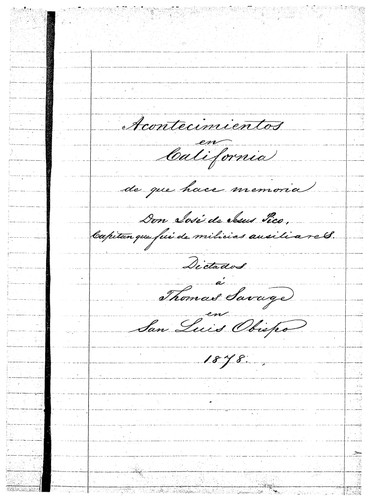 Acontecimientos
en
California
de que hace memoria
Don José de Jesus Pico,
Capitan que fué de milicias auxiliares.
Dictados
á
Thomas Savage
en
San Luis Obispo
1878.